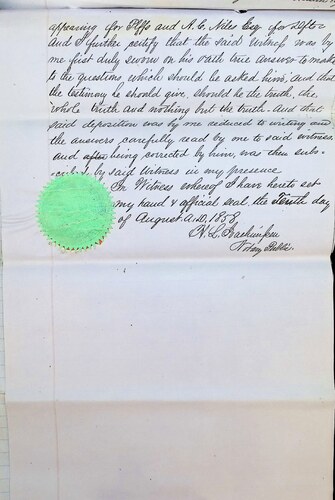 appearing for Plffs and A. C. Niles Esq for Defts
And I further certify that the said Witness was by
me first duly sworn on his oath true answer to make
to the questions, which should be asked him, and that
the testimony he should give, should be the truth, the
whole truth and nothing but the truth. And that
said deposition was by me reduced to writing and
the answers carefully read by me to said witness
and after being corrected by him, was then sub-
scribed by said Witness in my presence
In Witness whereof I have hereto set
my hand & official seal the Tenth day
of August A.D. 1858
Notary Public